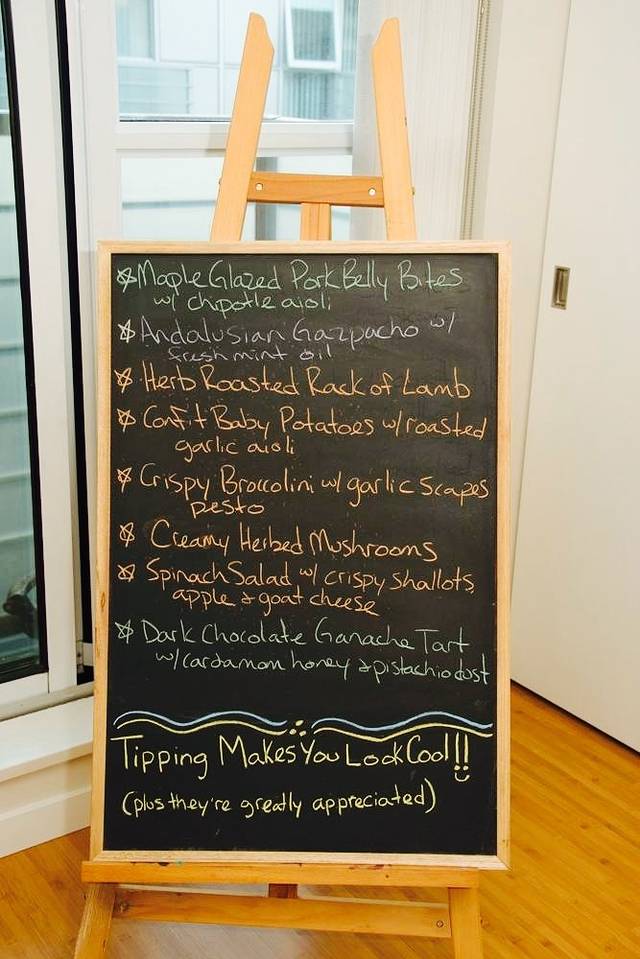 Maple Glazed Pork Belly Bites
w/ chipotle aioli
Andalusian Gazpacho w/
fresh mint oil
Herb Roasted Rack of Lamb
Confit Baby Potatoes w/ roasted
garlic aioli
Crispy Broccolini w/ garlic scapes
pesto
Creamy Herbed Mushrooms
Spinach Salad w/ crispy shallots,
apple & goat cheese
Dark Chocolate Ganache Tart
w/ cardamom honey & pistachio dust
Tipping Makes You Look Cool!!
(plus they're greatly appreciated)